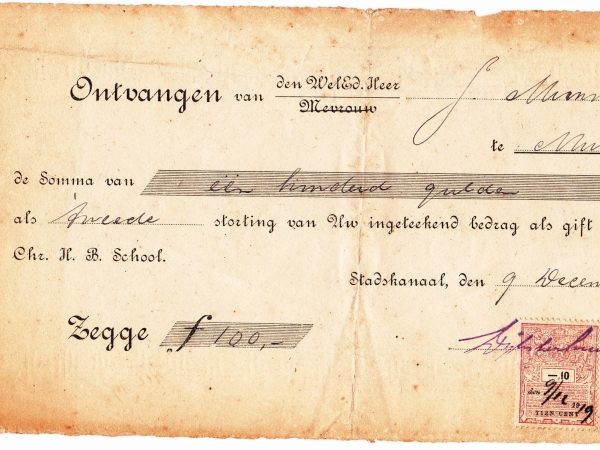 Ontvangen van den WelEd. Heer
Mevrouw
te
de Somma van één honderd gulden
als tweede storting van Uw ingeteekend bedrag als gift
Chr. H. B. School.
Stadskanaal, den 9 Decem
Zegge f 100,-
—10
den 9/12 1919
TIEN CENT